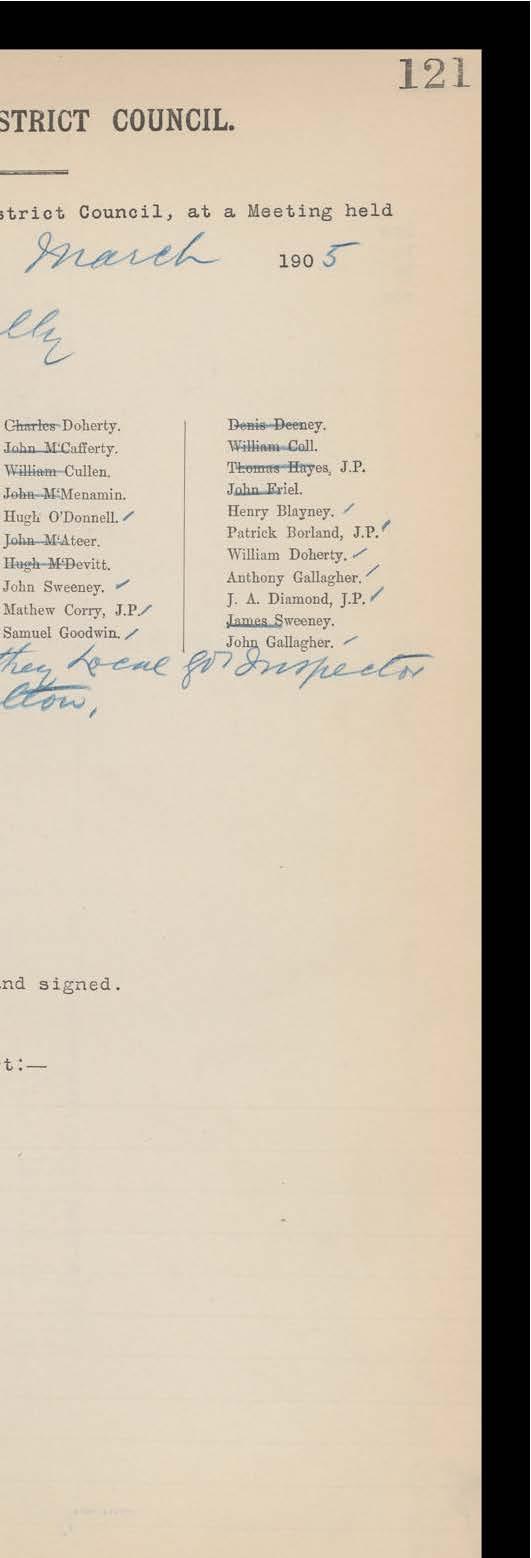 121
STRICT COUNCIL.
strict Council, at a Meeting held
March 1905
lly
Charles Doherty.
John M'Cafferty.
William Cullen.
John M'Menamin.
Hugh O'Donnell.
John M'Ateer.
Hugh M'Devitt.
John Sweeney.
Mathew Corry, J.P.
Samuel Goodwin.
Denis Deeney.
William Coll.
Thomas Hayes, J.P.
John Friel.
Henry Blayney.
Patrick Borland, J.P.
William Doherty.
Anthony Gallagher.
J. A. Diamond, J.P.
James Sweeney.
John Gallagher.
they Local Inspector
lton,
nd signed.
t:—